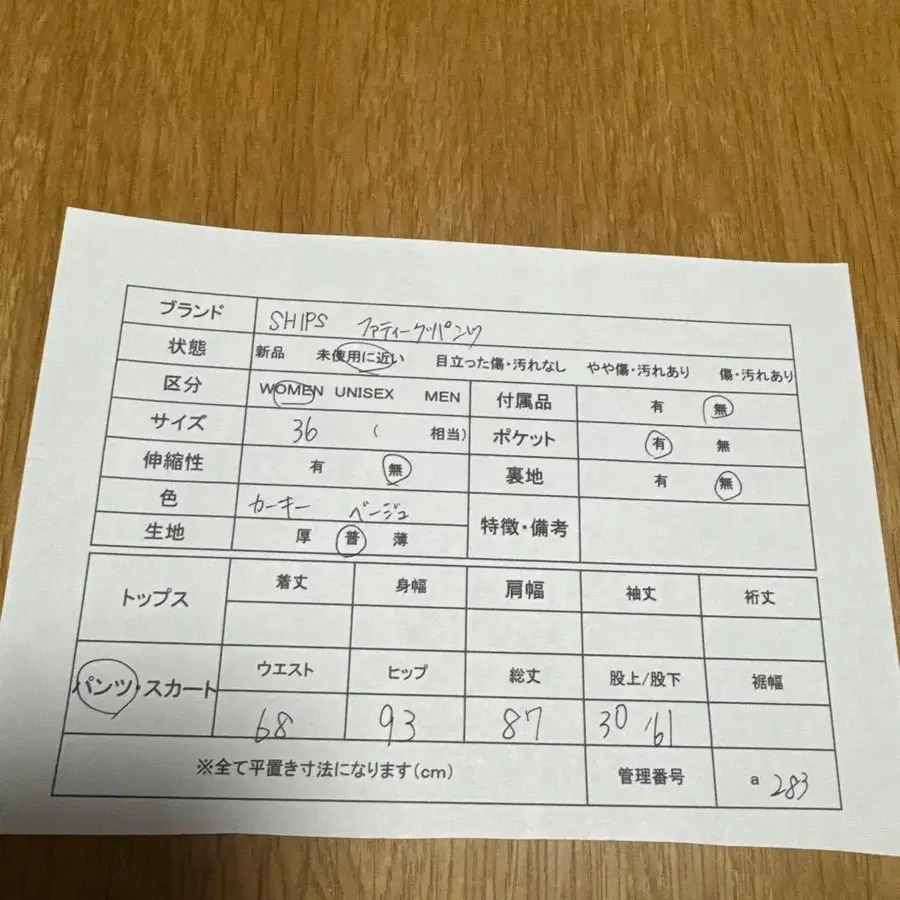 ブランド SHIPS ファティーグパンツ
状態 新品 未使用に近い 目立った傷・汚れなし やや傷・汚れあり 傷・汚れあり
区分 WOMEN UNISEX MEN 付属品 有 無
サイズ 36 ( 相当) ポケット 有 無
伸縮性 有 無 裏地 有 無
色 カーキー ベージュ 特徴・備考
生地 厚 普 薄
トップス 着丈 身幅 肩幅 袖丈 裄丈
パンツ・スカート ウエスト ヒップ 総丈 股上/股下 裾幅
68 93 87 30 /61
※全て平置き寸法になります(cm) 管理番号 a 283